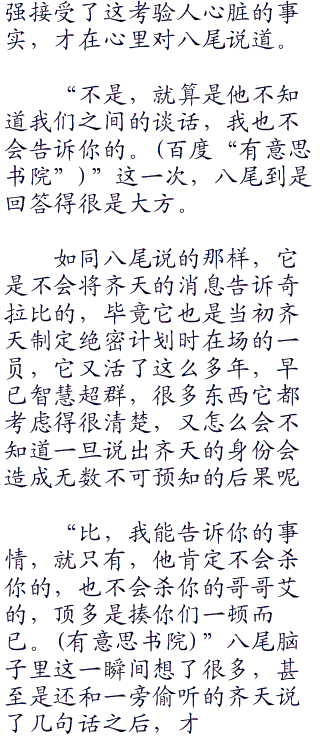 强接受了这考验人心脏的事
实，才在心里对八尾说道。
“不是，就算是他不知
道我们之间的谈话，我也不
会告诉你的。(百度“有意思
书院”)”这一次，八尾到是
回答得很是大方。
如同八尾说的那样，它
是不会将齐天的消息告诉奇
拉比的，毕竟它也是当初齐
天制定绝密计划时在场的一
员，它又活了这么多年，早
已智慧超群，很多东西它都
考虑得很清楚，又怎么会不
知道一旦说出齐天的身份会
造成无数不可预知的后果呢
“比，我能告诉你的事
情，就只有，他肯定不会杀
你的，也不会杀你的哥哥艾
的，顶多是揍你们一顿而
已。(有意思书院)”八尾脑
子里这一瞬间想了很多，甚
至是还和一旁偷听的齐天说
了几句话之后，才